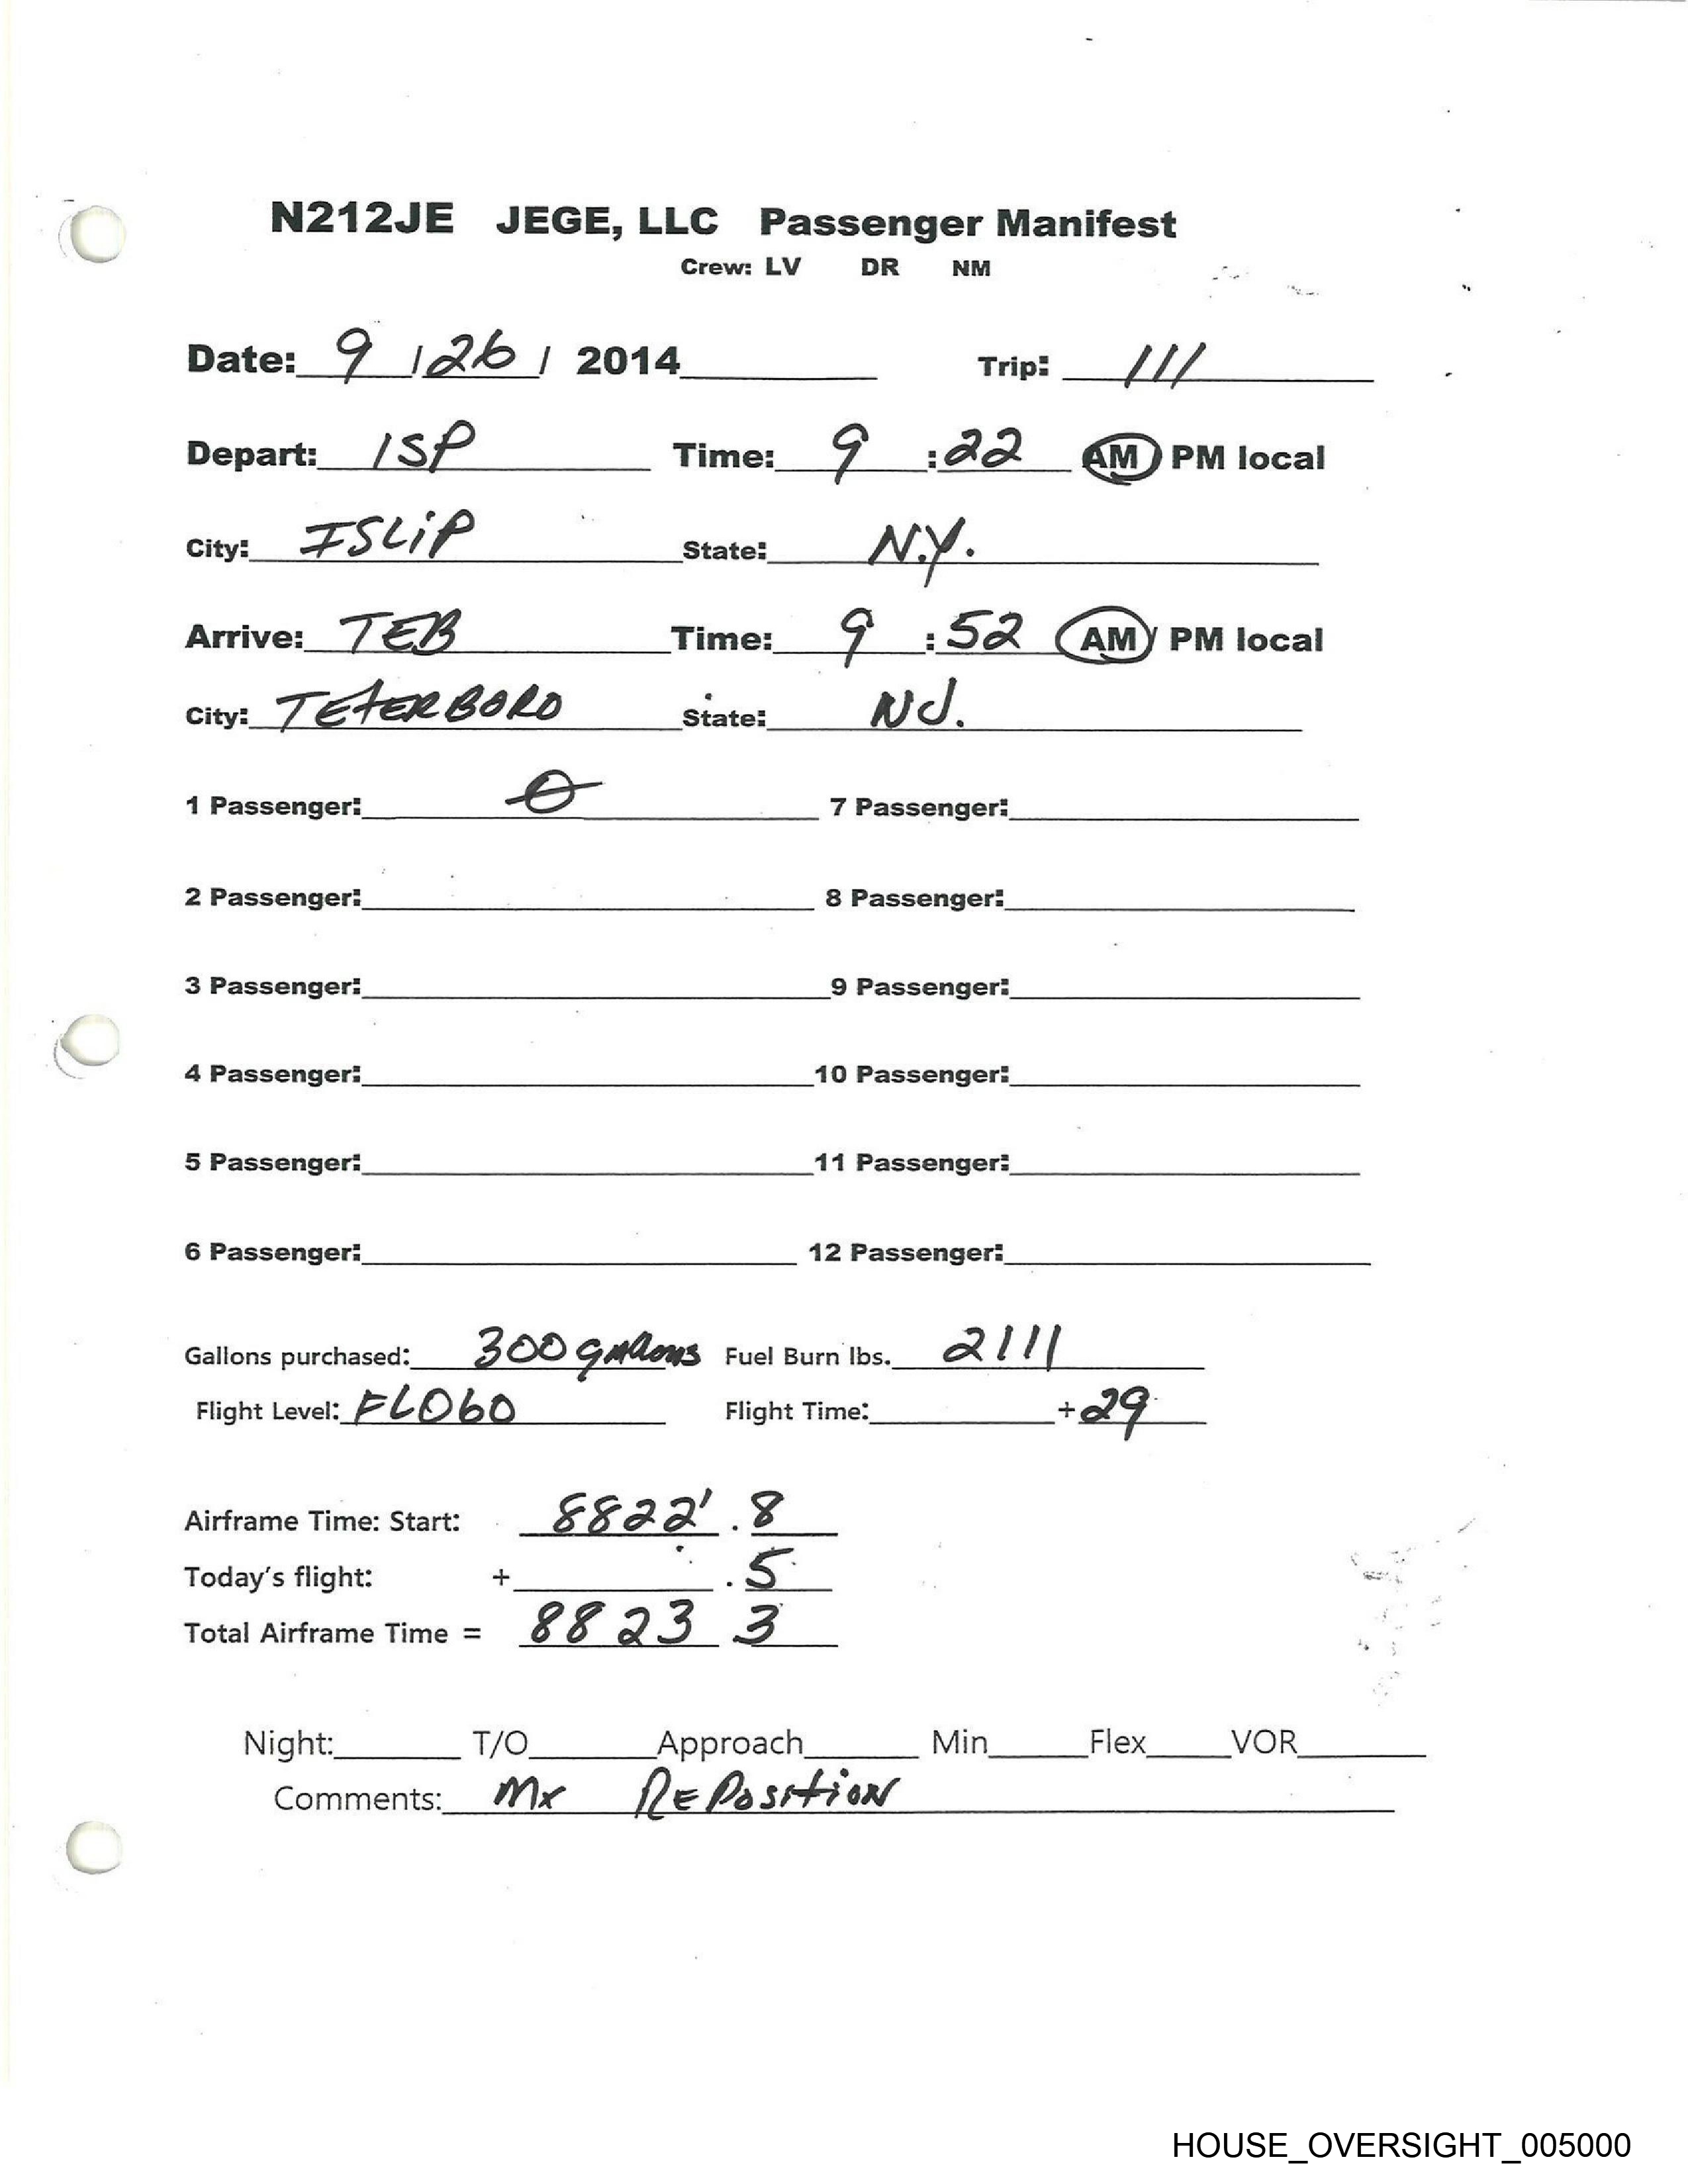 N212JE JEGE, LLC Passenger Manifest
Crew: LV DR NM
Date: 9 / 26 / 2014 Trip: 111
Depart: ISP Time: 9 : 22 AM PM local
City: ISLiP State: N.Y.
Arrive: TEB Time: 9 : 52 AM / PM local
City: TETERBORO State: NJ.
1 Passenger: 0 7 Passenger:
2 Passenger: 8 Passenger:
3 Passenger: 9 Passenger:
4 Passenger: 10 Passenger:
5 Passenger: 11 Passenger:
6 Passenger: 12 Passenger:
Gallons purchased: 300 gallons Fuel Burn lbs. 2111
Flight Level: FL060 Flight Time: + 29
Airframe Time: Start: 8822 . 8
Today's flight: + . 5
Total Airframe Time = 8823 3
Night: T/O Approach Min Flex VOR
Comments: Mx REPOSITION
HOUSE_OVERSIGHT_005000